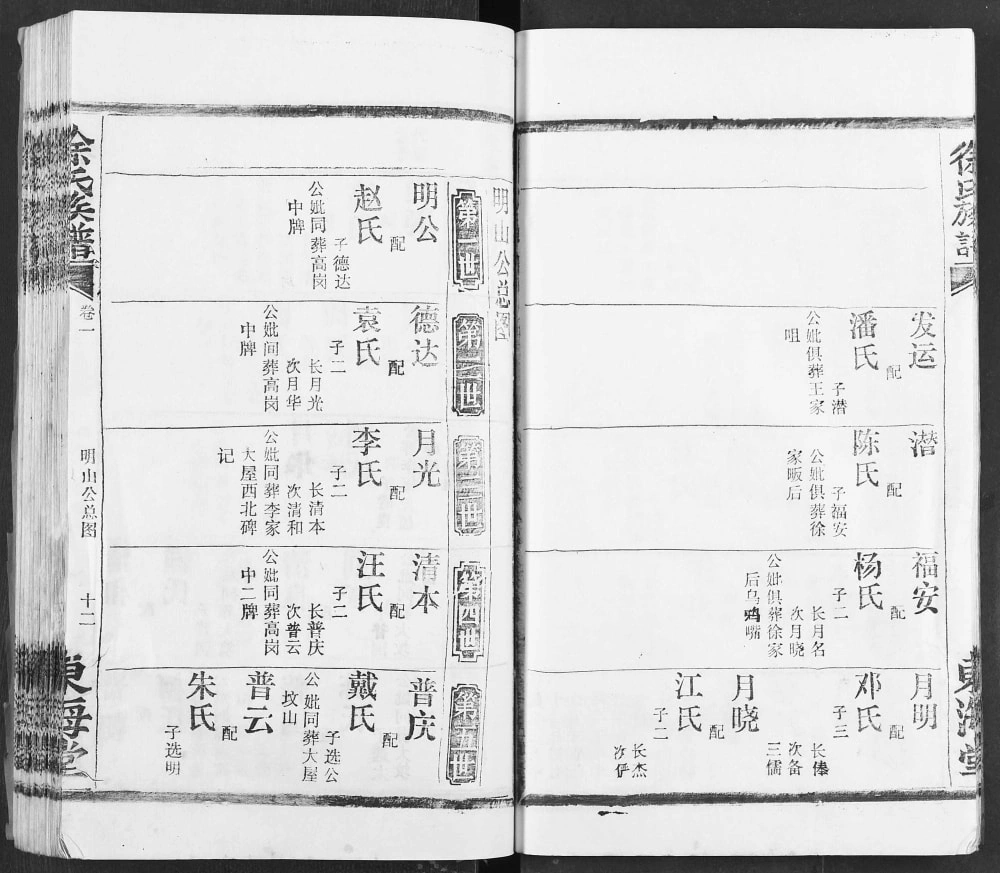 徐氏族譜
發运
配
潘氏
子潜
公妣俱葬王家
咀
潜
配
陈氏
子福安
公妣俱葬徐
家畈后
福安
配
杨氏
子二
长月名
次月晓
公妣俱葬徐家
后乌鸡嘴
月明
配
邓氏
子三
长俸
次备
三儒
月晓
配
江氏
子二
长杰
次伊
東海堂
明山公总图
第一世
明公
配
赵氏
子德达
公妣同葬高岗
中牌
第二世
德达
配
袁氏
子二
长月光
次月华
公妣间葬高岗
中牌
第三世
月光
配
李氏
子二
长清本
次清和
公妣同葬李家
大屋西北碑
记
第四世
清本
配
汪氏
子二
长普庆
次普云
公妣同葬高岗
中二牌
第五世
普庆
配
戴氏
子选公
公妣同葬大屋
坟山
普云
配
朱氏
子选明
徐氏族譜
卷一
明山公总图
十二
東海堂